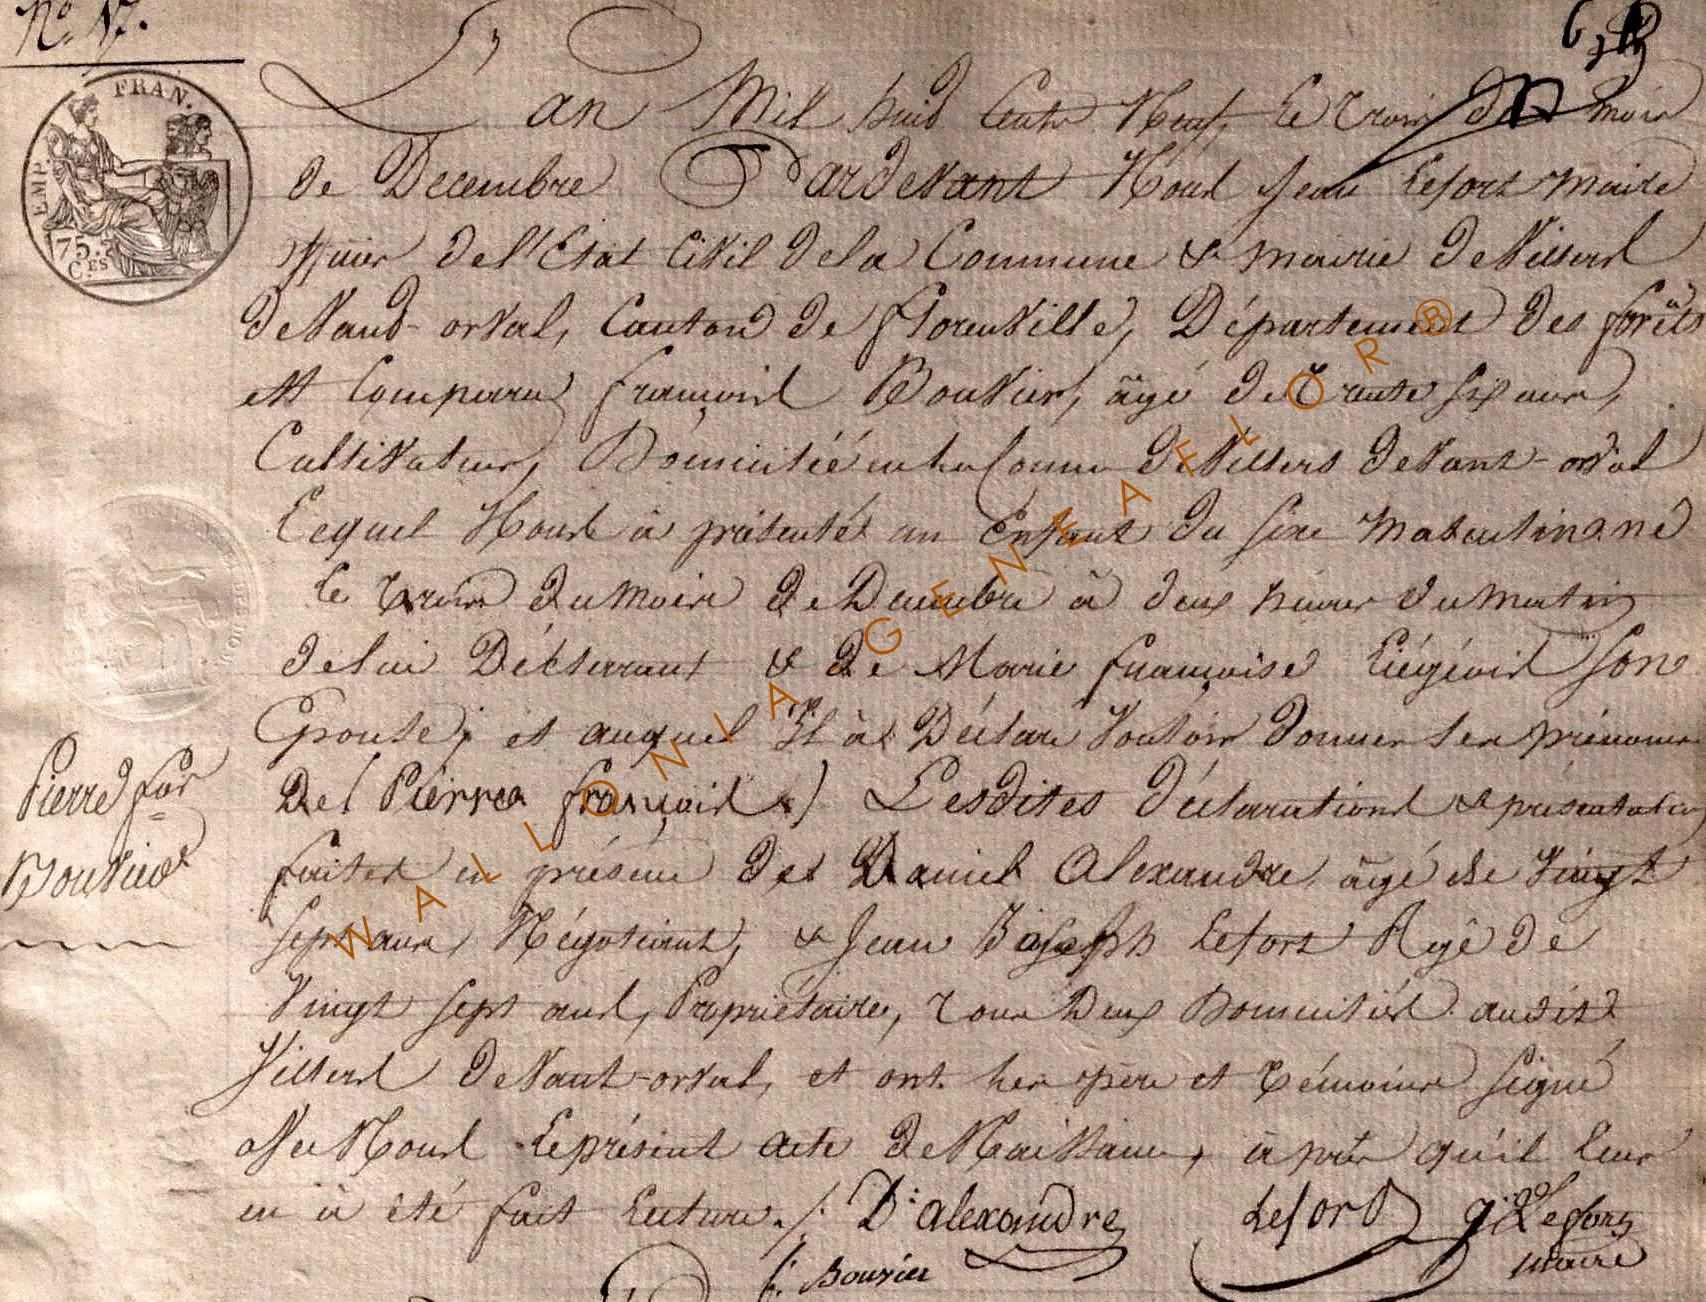 N.º 17.
FRAN.
EMP.
75.
CES
L'an Mil huid Cents Neuf, le trois du mois
de Decembre Pardevant Nous Jean Lefort Maire
officier de l'Etat Civil de la Commune & mairie de Villers
devand-orval, Canton de Florenville, Département des forêts
est Comparu françois Bouvier, âgé de trente six ans,
Cultivateur, Domicilié en la Comne de Villers devant-orval
Lequel Nous à présenté un Enfant du sexe Masculin né
le trois du Mois de Decembre à deux heures du Matin
de lui Déclarant & de Marie françoise Liégeois Son
Epouse; et auquel Il à Déclaré Vouloir donner les prénoms
De Pierre françois Lesdites déclarations & présentation
faites en présence de Daniel Alexandre âgé de Vingt
sept ans, Négociant, & Jean Joseph Lefort Agé de
Vingt sept ans, Propriétaire, tous Deux Domiciliés audit
Villers devant-orval, et ont les père et témoins signé
avec Nous le présent acte de Naissance, après qu'il leur
en à été fait Lecture./. D. alexandre Lefort Lefort
f. Bouvier maire
Pierre fçois
Bouvier
WALLONIA GENEAFLOR®